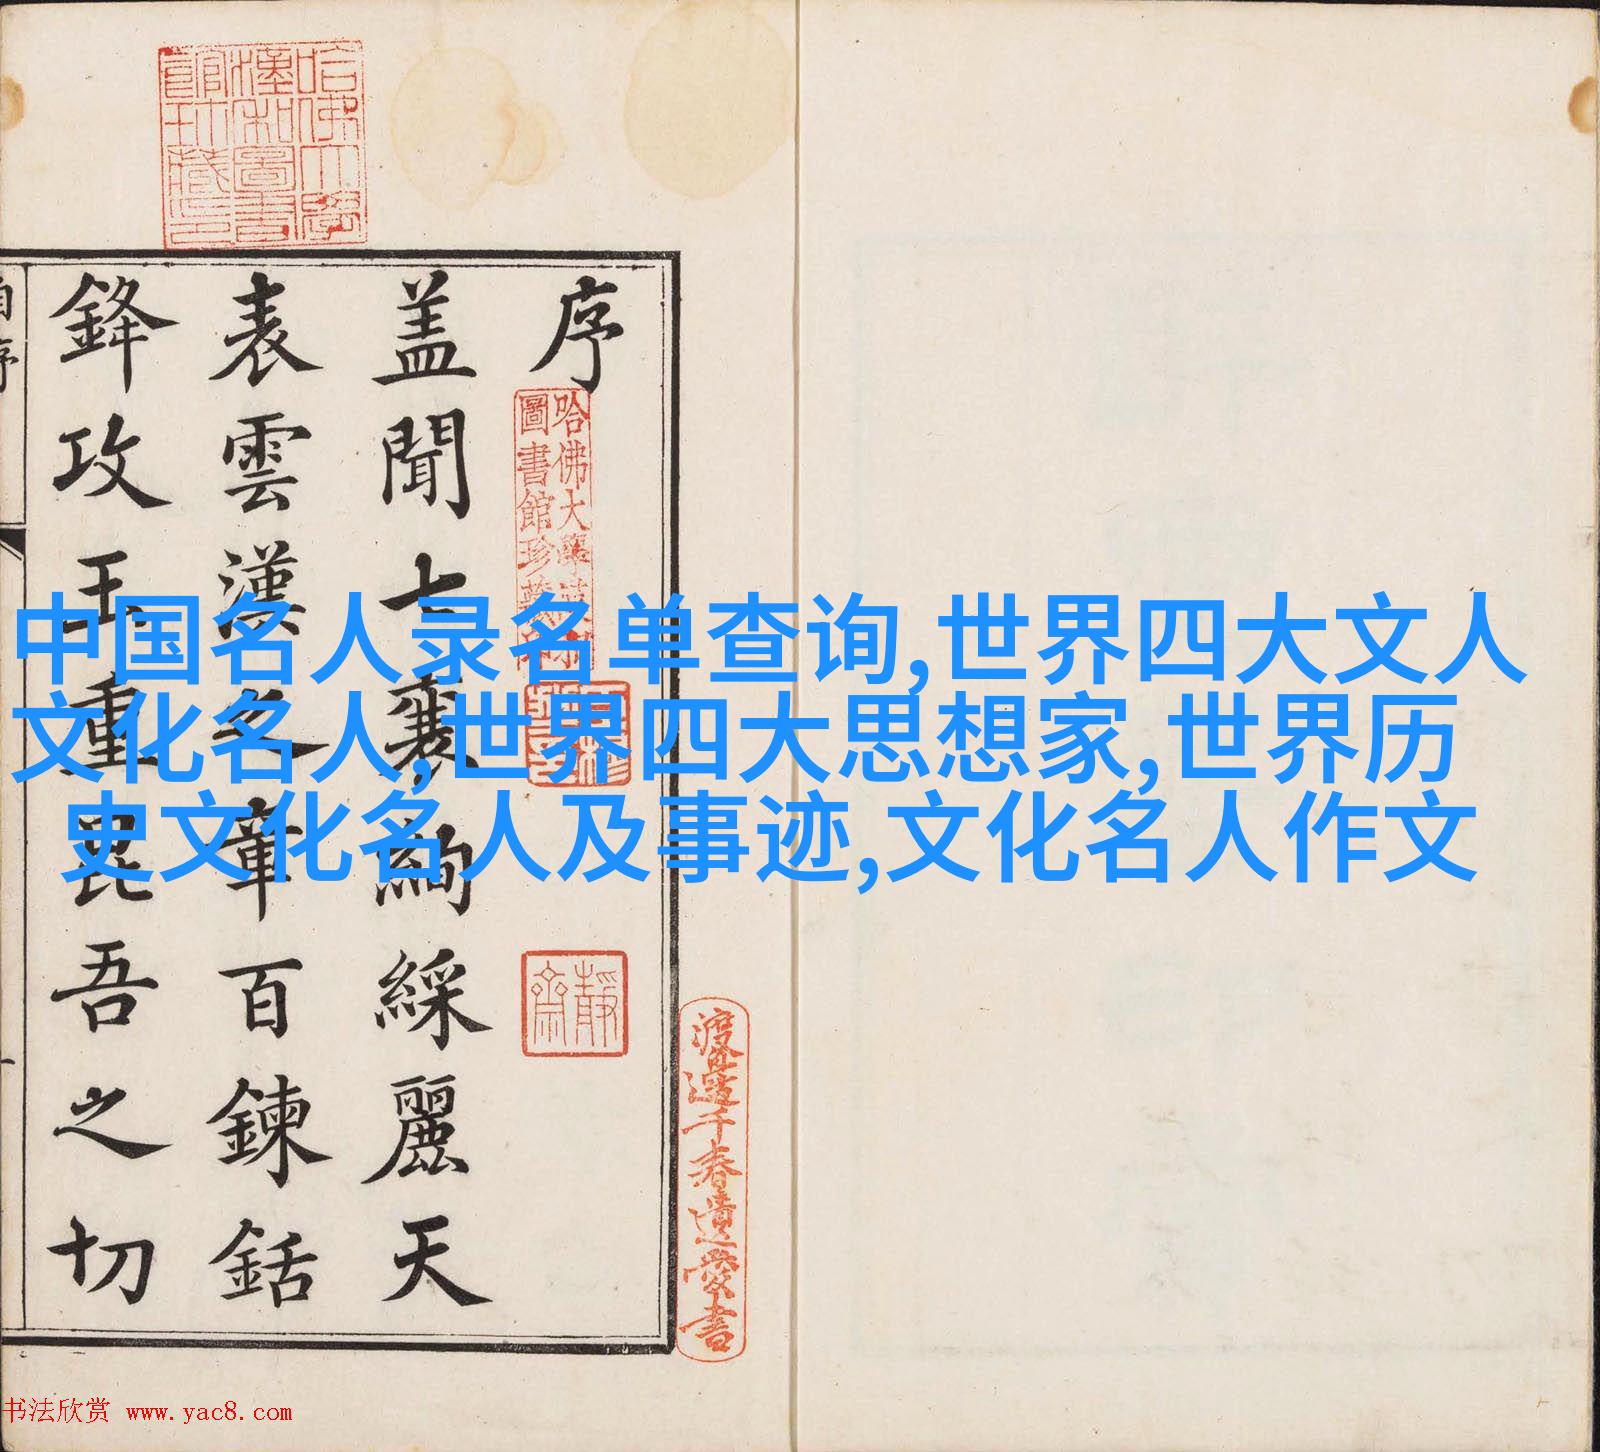 哈佛大學
漢和圖書
館珍藏印
序
盖聞七襄絢綵麗天
表雲漢之章百鍊銛
鋒攻玉重昆吾之切
自序
哈佛大學漢和
圖書館珍藏印
靜齋
渡邊千春遺愛書
中国名人录名单查询,世界四大文人
文化名人,世界四大思想家,世界历
史文化名人及事迹,文化名人作文
书法欣赏 www.yac8.com